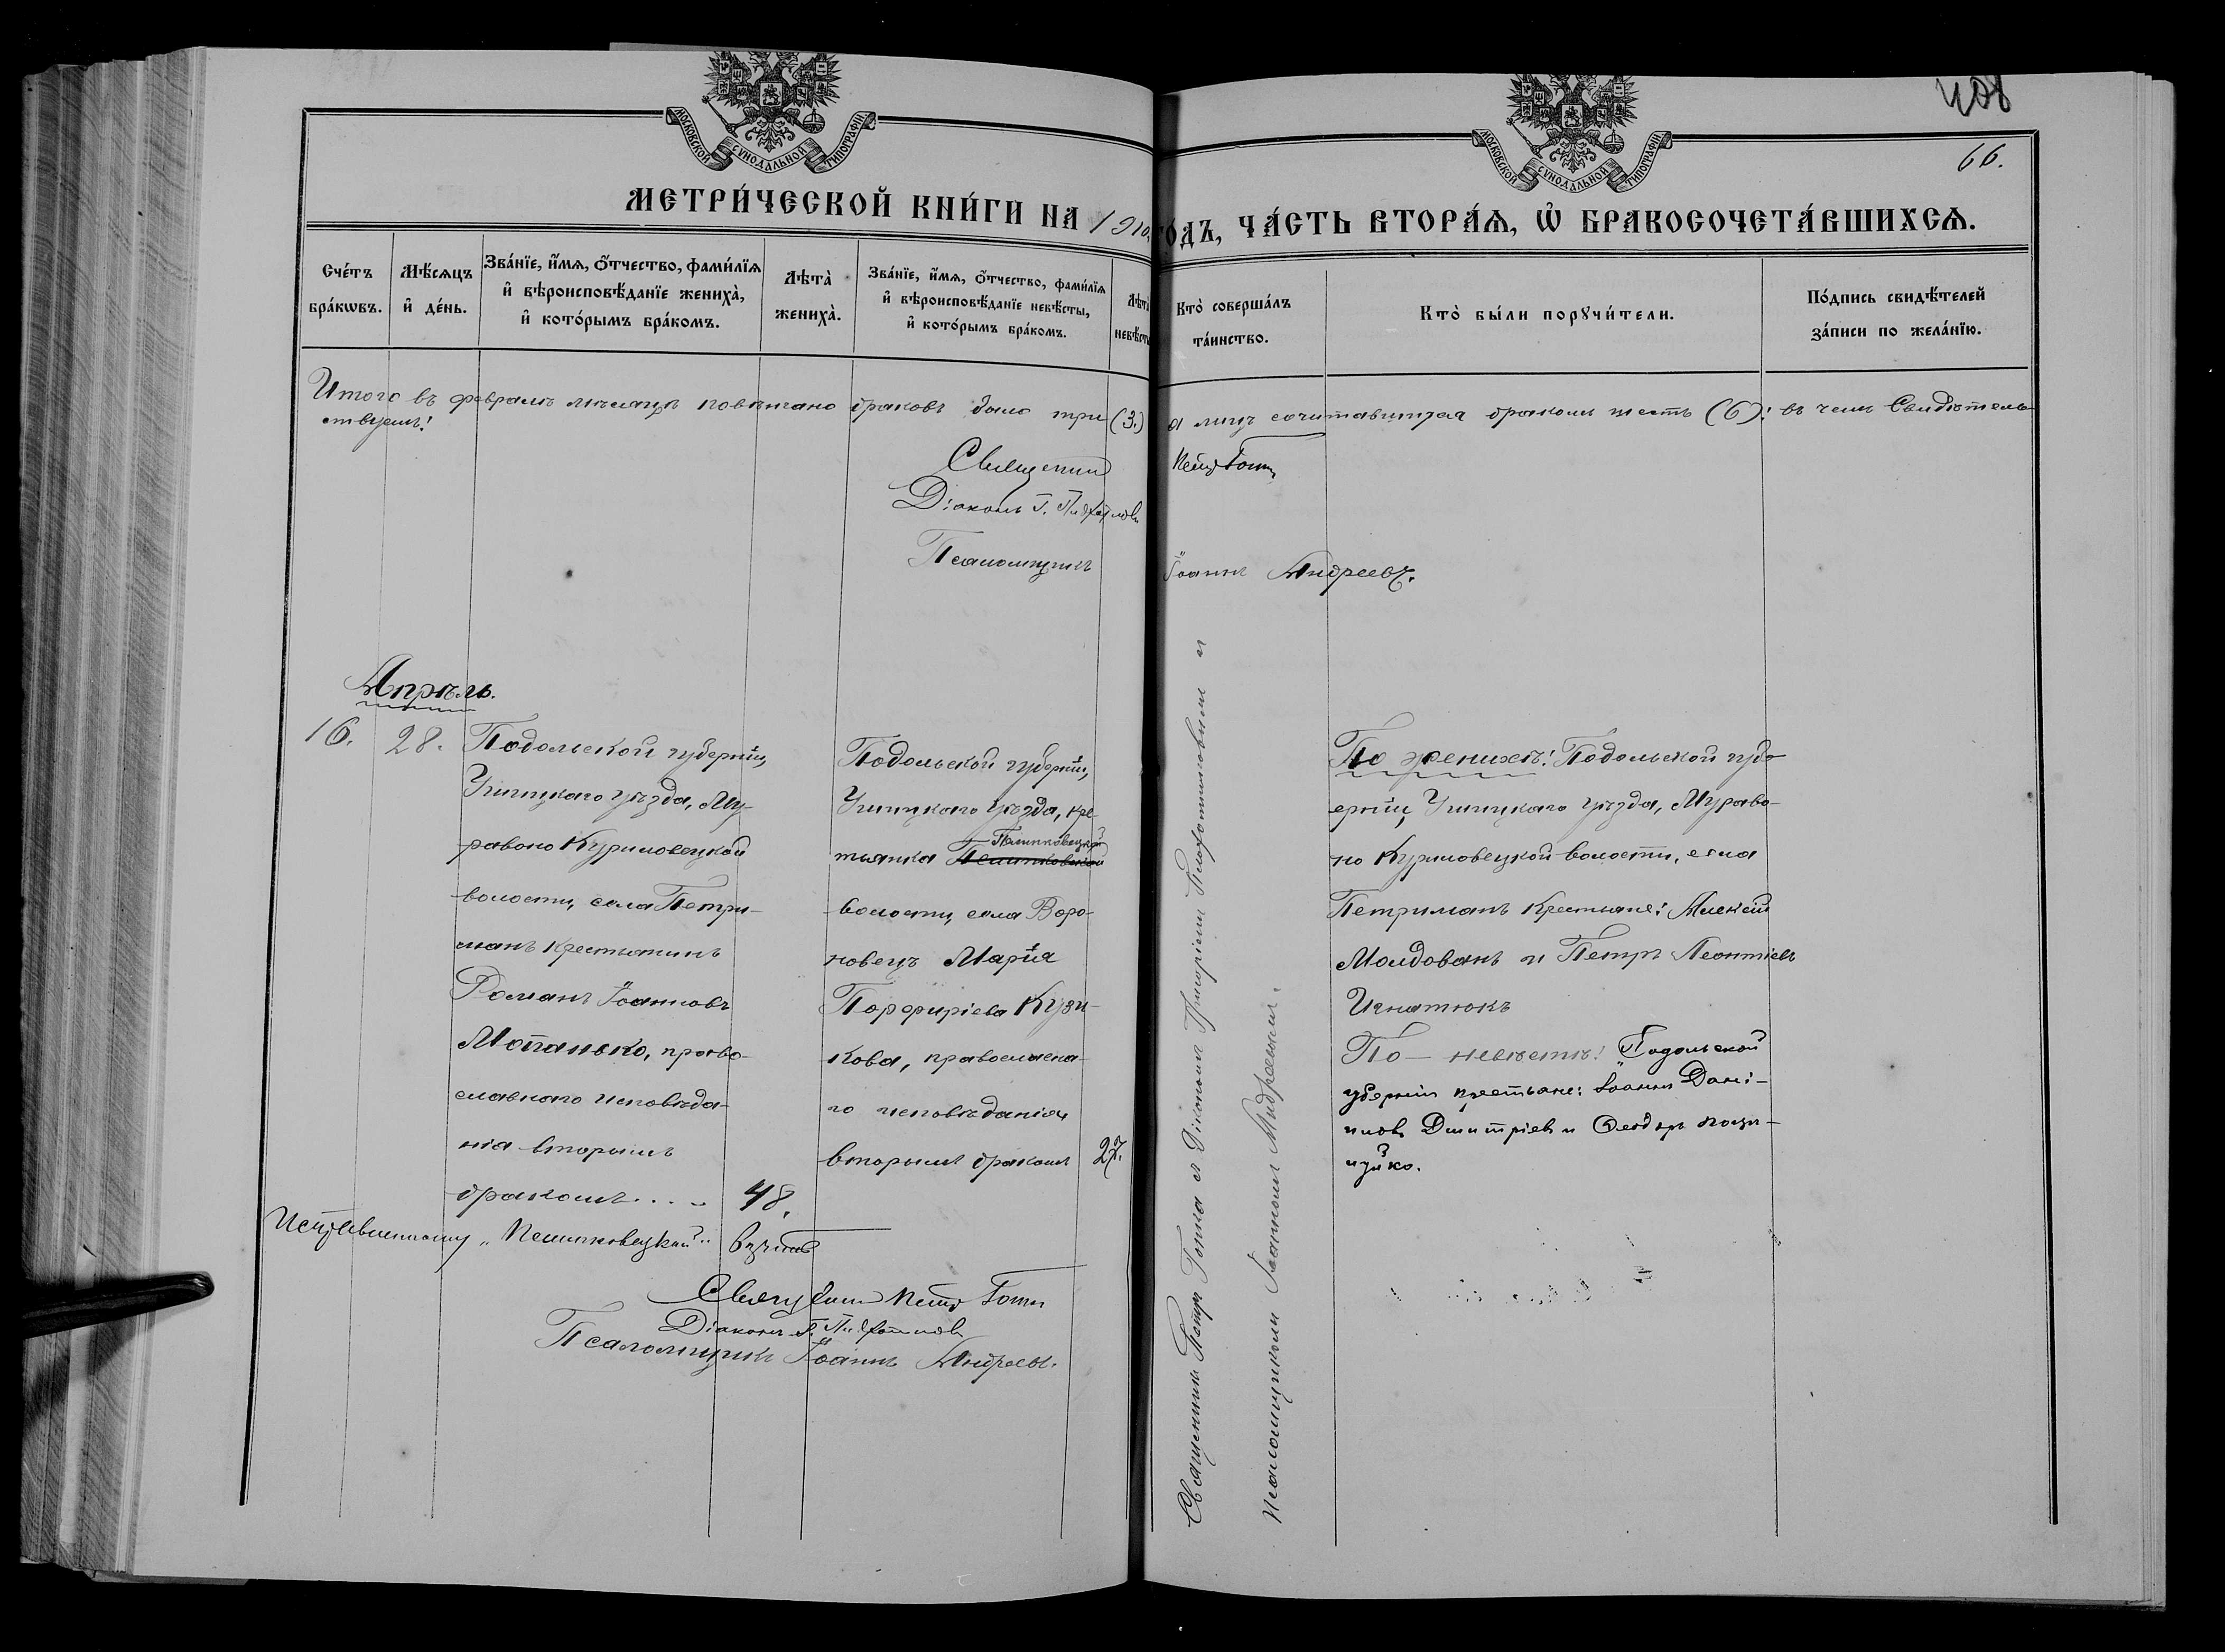 408
66.
МОСКОВСКОЙ СѴНОДАЛЬНОЙ ТИПОГРАФІИ
МОСКОВСКОЙ СѴНОДАЛЬНОЙ ТИПОГРАФІИ
МЕТРИ́ЧЕСКОЙ КНИ́ГИ НА 1910. ГО́ДЪ, ЧА́СТЬ ВТОРА́Ѧ, Ѡ҆ БРАКОСОЧЕТА́ВШИХСѦ.
Сче́тъ бра́кѡвъ.
Мѣ́сѧцъ и҆ де́нь.
Зва́нїе, и҆́мѧ, ѻ҆́тчество, фами́лїѧ и҆ вѣроисповѣ́данїе жениха̀, и҆ кото́рымъ бра́комъ.
Лѣта̀ жениха̀.
Зва́нїе, и҆́мѧ, ѻ҆́тчество, фами́лїѧ и҆ вѣроисповѣ́данїе невѣ́сты, и҆ кото́рымъ бра́комъ.
Лѣта̀ невѣ́сты
Кто̀ соверша́лъ та́инство.
Кто̀ бы́ли порꙋчи́тели.
По́дпись свидѣ́телей за́писи по жела́нїю.
Итого въ февралѣ мѣсяцѣ повѣнчано браковъ было три (3.) а лицъ сочитавшихся бракомъ шесть (6); въ чемъ Свидѣтель-
ствуемъ:
Священникъ Петръ
Діаконъ Г.
Псаломщикъ Іоаннъ Андреевъ.
Апрѣль.
16.
28.
Подольской губерніи,
Ушицкаго уѣзда, Му-
равоно Куриловецкой
волости, села Петри-
манъ крестьянинъ
Романъ Іоанновъ
Мотанько, право-
славнаго исповѣда-
нія вторымъ
бракомъ....
48.
Подольской губерніи,
Ушицкаго уѣзда, кре-
стьянка
волости, села Воро-
новецъ Марія
Порфиріева Кузи-
кова, православна-
го исповѣданія
вторымъ бракомъ
27.
Священникъ Петръ и Діаконъ Григоріемъ и
псаломщикомъ Іоанномъ Андреевымъ.
По женихѣ: Подольской губ-
ерніи, Ушицкаго уѣзда, Мураво-
но Куриловецкой волости, села
Петриманъ крестьяне: Алексѣй
Молдованъ и Петръ Леонтіевъ
Игнатюкъ
По невѣстѣ: Подольской
губерніи крестьяне: Іоаннъ Дані-
иловъ Дмитріевъ и Ѳеодоръ
Исправленному вѣрить
Священникъ Петръ
Діаконъ Г.
Псаломщикъ Іоаннъ Андреевъ.